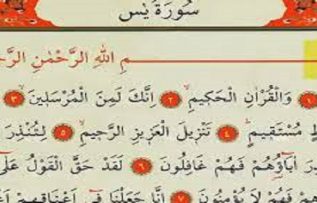 سُورَةُ يٰسٓ
مِ اللّٰهِ الرَّحْمٰنِ
﴿١﴾ وَالْقُرْاٰنِ الْحَكٖيمِ ﴿٢﴾ اِنَّكَ لَمِنَ الْمُرْسَلٖينَ ﴿٣﴾
مُسْتَقٖيمٍ ﴿٤﴾ تَنْزٖيلَ الْعَزٖيزِ الرَّحٖيمِ ﴿٥﴾ لِتُنْذِرَ
اٰبَٓاؤُ۬هُمْ فَهُمْ غَافِلُونَ ﴿٦﴾ لَقَدْ حَقَّ الْقَوْلُ عَلٰٓى
فَهُمْ لَا يُؤْمِنُونَ ﴿٧﴾ اِنَّا جَعَلْنَا فٖٓي اَعْنَاقِهِمْ